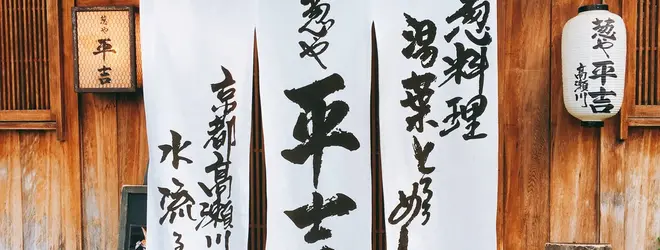 葱料理
湯葉とめし
葱や
平吉
京都高瀬川
水流る
葱や
平吉
葱や平吉
高瀬川